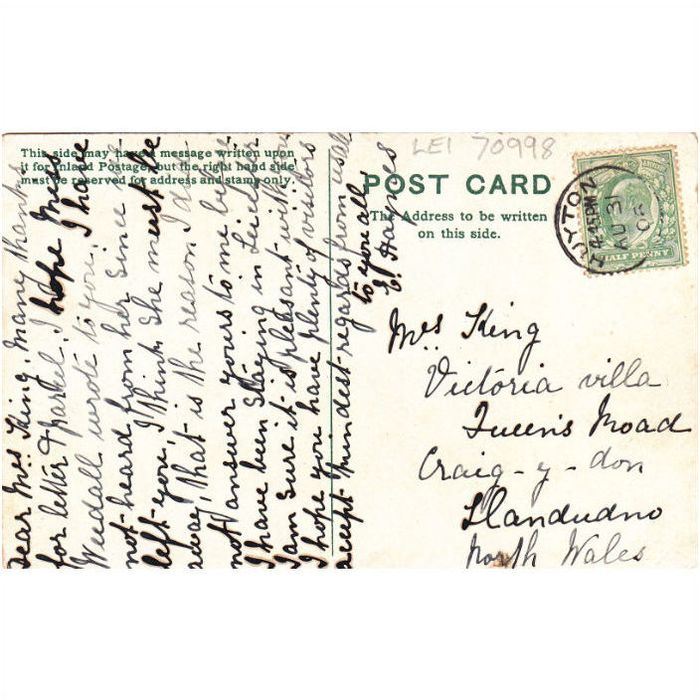 This side may have a message written upon
it for Inland Postage, but the right hand side
must be reserved for address and stamp only.
Dear Mrs King, Many thanks
for letter & parcel. I hope Miss
Weedall wrote to you. I have
not heard from her since she
left you, I think she must be
away, that is the reason I did
not answer yours to me before
I have been staying in Leicester
I am sure it is pleasant with you
I hope you have plenty of visitors
accept kindest regards from us all
to you all
E. Haynes
LEI 70998
POST CARD
The Address to be written
on this side.
4.45PM
AU 31
HALF PENNY
Mrs King
Victoria villa
Queens Road
Craig-y-don
Llandudno
North Wales